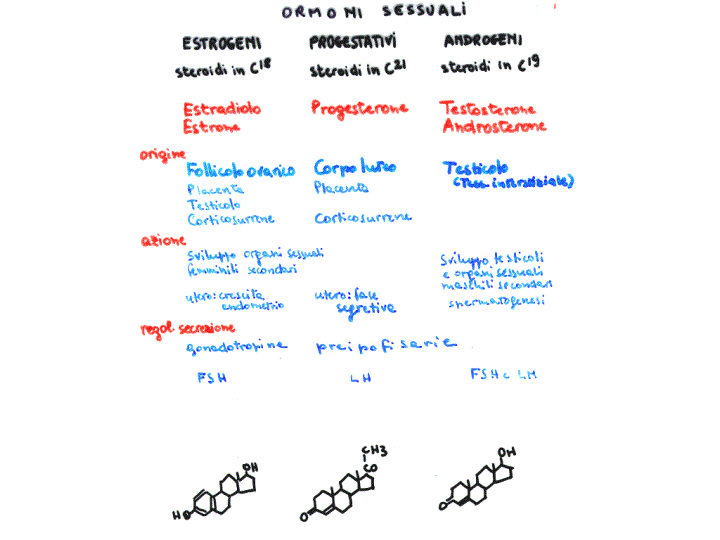 ORMONI SESSUALI
ESTROGENI PROGESTATIVI ANDROGENI
steroidi in C18 steroidi in C21 steroidi in C19
Estradiolo Progesterone Testosterone
Estrone Androsterone
origine
Follicolo ovarico Corpo luteo Testicolo
Placenta Placenta (Tess. interstiziale)
Testicolo
Corticosurrene Corticosurrene
azione
Sviluppo organi sessuali Sviluppo testicoli
femminili secondari e organi sessuali
maschili secondari
utero: crescita utero: fase spermatogenesi
endometrio segretiva
regol. secrezione
gonadotropine preipofisarie
FSH LH FSH e LH
OH CH3 OH
CO
HO O O